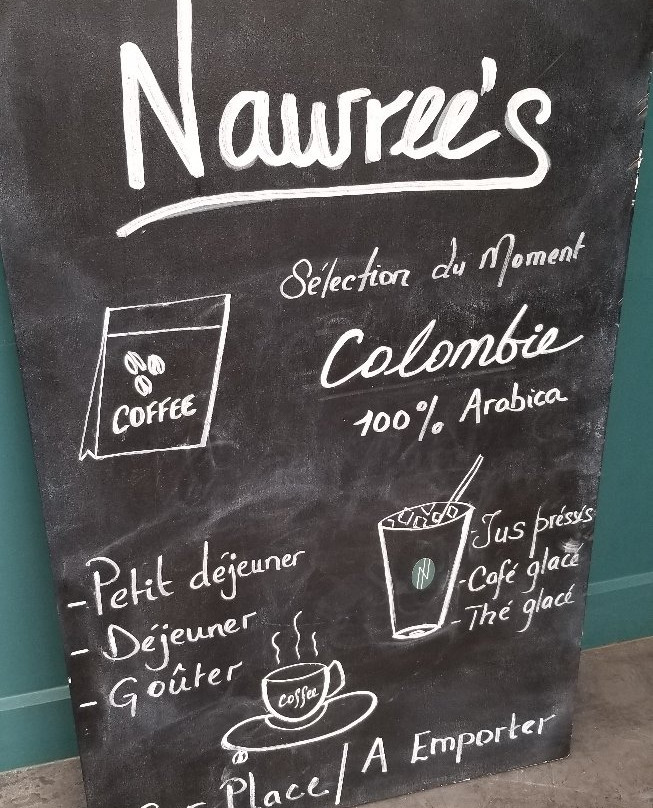 Nawree's
Sélection du Moment
Colombie
100% Arabica
COFFEE
- Jus préssés
- Café glacé
- Thé glacé
N
- Petit déjeuner
- Déjeuner
- Goûter
coffee
Sur Place / A Emporter